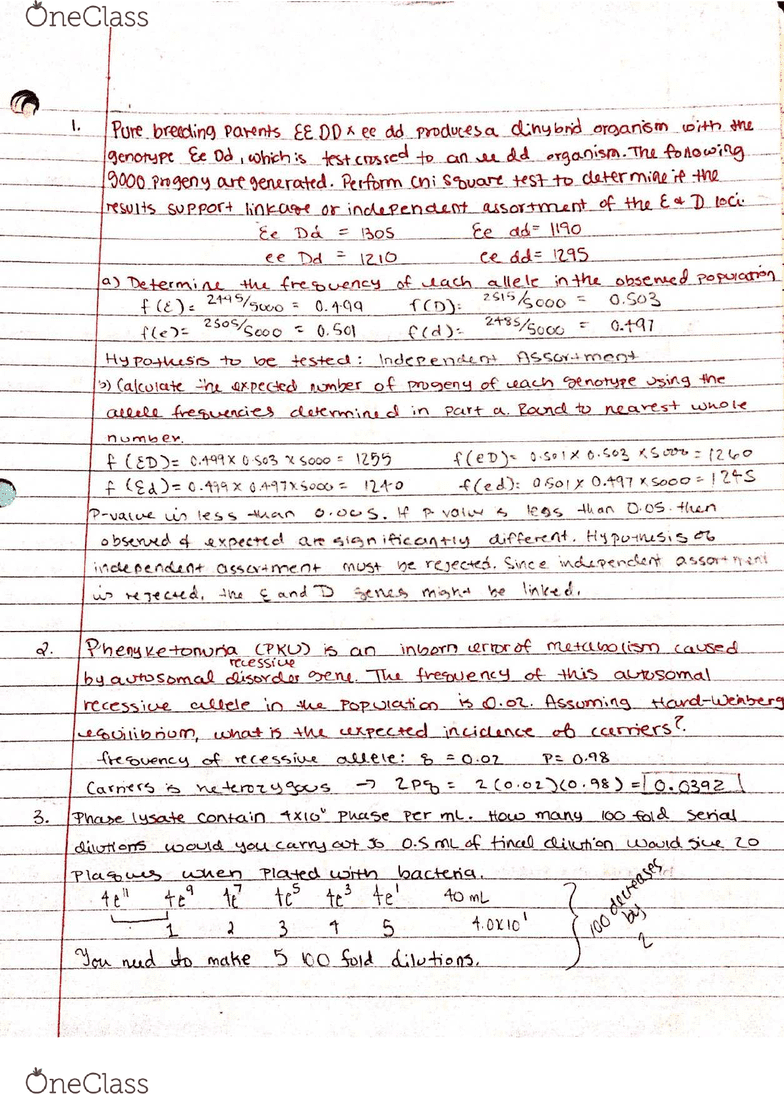 OneClass
1. Pure breeding parents EE DD x ee dd produces a dihybrid organism with the
genotype Ee Dd, which is test crossed to an ee dd organism. The following
5000 progeny are generated. Perform chi square test to determine if the
results support linkage or independent assortment of the E & D loci.
Ee Dd = 1305 Ee dd = 1190
ee Dd = 1210 ee dd = 1295
a) Determine the frequency of each allele in the observed population
f(E) = 2495/5000 = 0.499 f(D): 2515/5000 = 0.503
f(e) = 2505/5000 = 0.501 f(d) = 2485/5000 = 0.497
Hypothesis to be tested: Independent Assortment
b) Calculate the expected number of progeny of each genotype using the
allele frequencies determined in part a. Round to nearest whole
number.
f(ED) = 0.499 x 0.503 x 5000 = 1255 f(eD) = 0.501 x 0.503 x 5000 = 1260
f(Ed) = 0.499 x 0.497 x 5000 = 1240 f(ed): 0.501 x 0.497 x 5000 = 1245
P-value is less than 0.005. If P value is less than 0.05. then
observed & expected are significantly different. Hypothesis of
independent assortment must be rejected. Since independent assortment
is rejected, the E and D genes might be linked.
2. Phenyketonuria (PKU) is an inborn error of metabolism caused
recessive
by autosomal disorder gene. The frequency of this autosomal
recessive allele in the population is 0.02. Assuming Hard-Weinberg
equilibrium, what is the expected incidence of carriers?
frequency of recessive allele: q = 0.02 P = 0.98
Carriers is heterozygous → 2pq = 2(0.02)(0.98) = 0.0392
3. Phage lysate contain 4x10" phage per mL. How many 100 fold serial
dilutions would you carry out so 0.5 mL of final dilution would give 20
plaques when plated with bacteria.
4e11 4e9 4e7 4e5 4e3 4e1 40 mL
1 2 3 4 5 4.0x10'
100 decreases
by
2
You need to make 5 100 fold dilutions.
OneClass